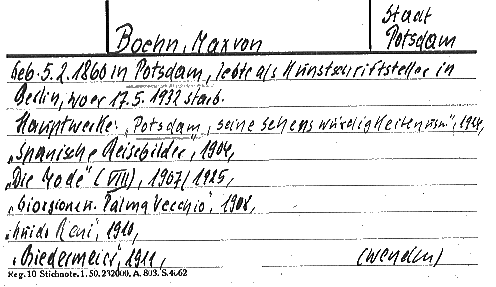 Stadt
Boehn, Max von Potsdam
Geb. 5.2.1860 in Potsdam, lebte als Kunstschriftsteller in
Berlin, wo er 17.5.1932 starb.
Hauptwerke: "Potsdam, seine Sehenswürdigkeiten usw.", 1924,
"Spanische Reisebilder", 1904,
"Die Mode" (VIII), 1907/1925,
"Giorgione u. Palma Vecchio", 1908,
"Guido Reni", 1910,
"Biedermeier", 1911, (Wendln)
Reg. 10 Stichnote. 1. 50. 232000. A. 803. S. 4662